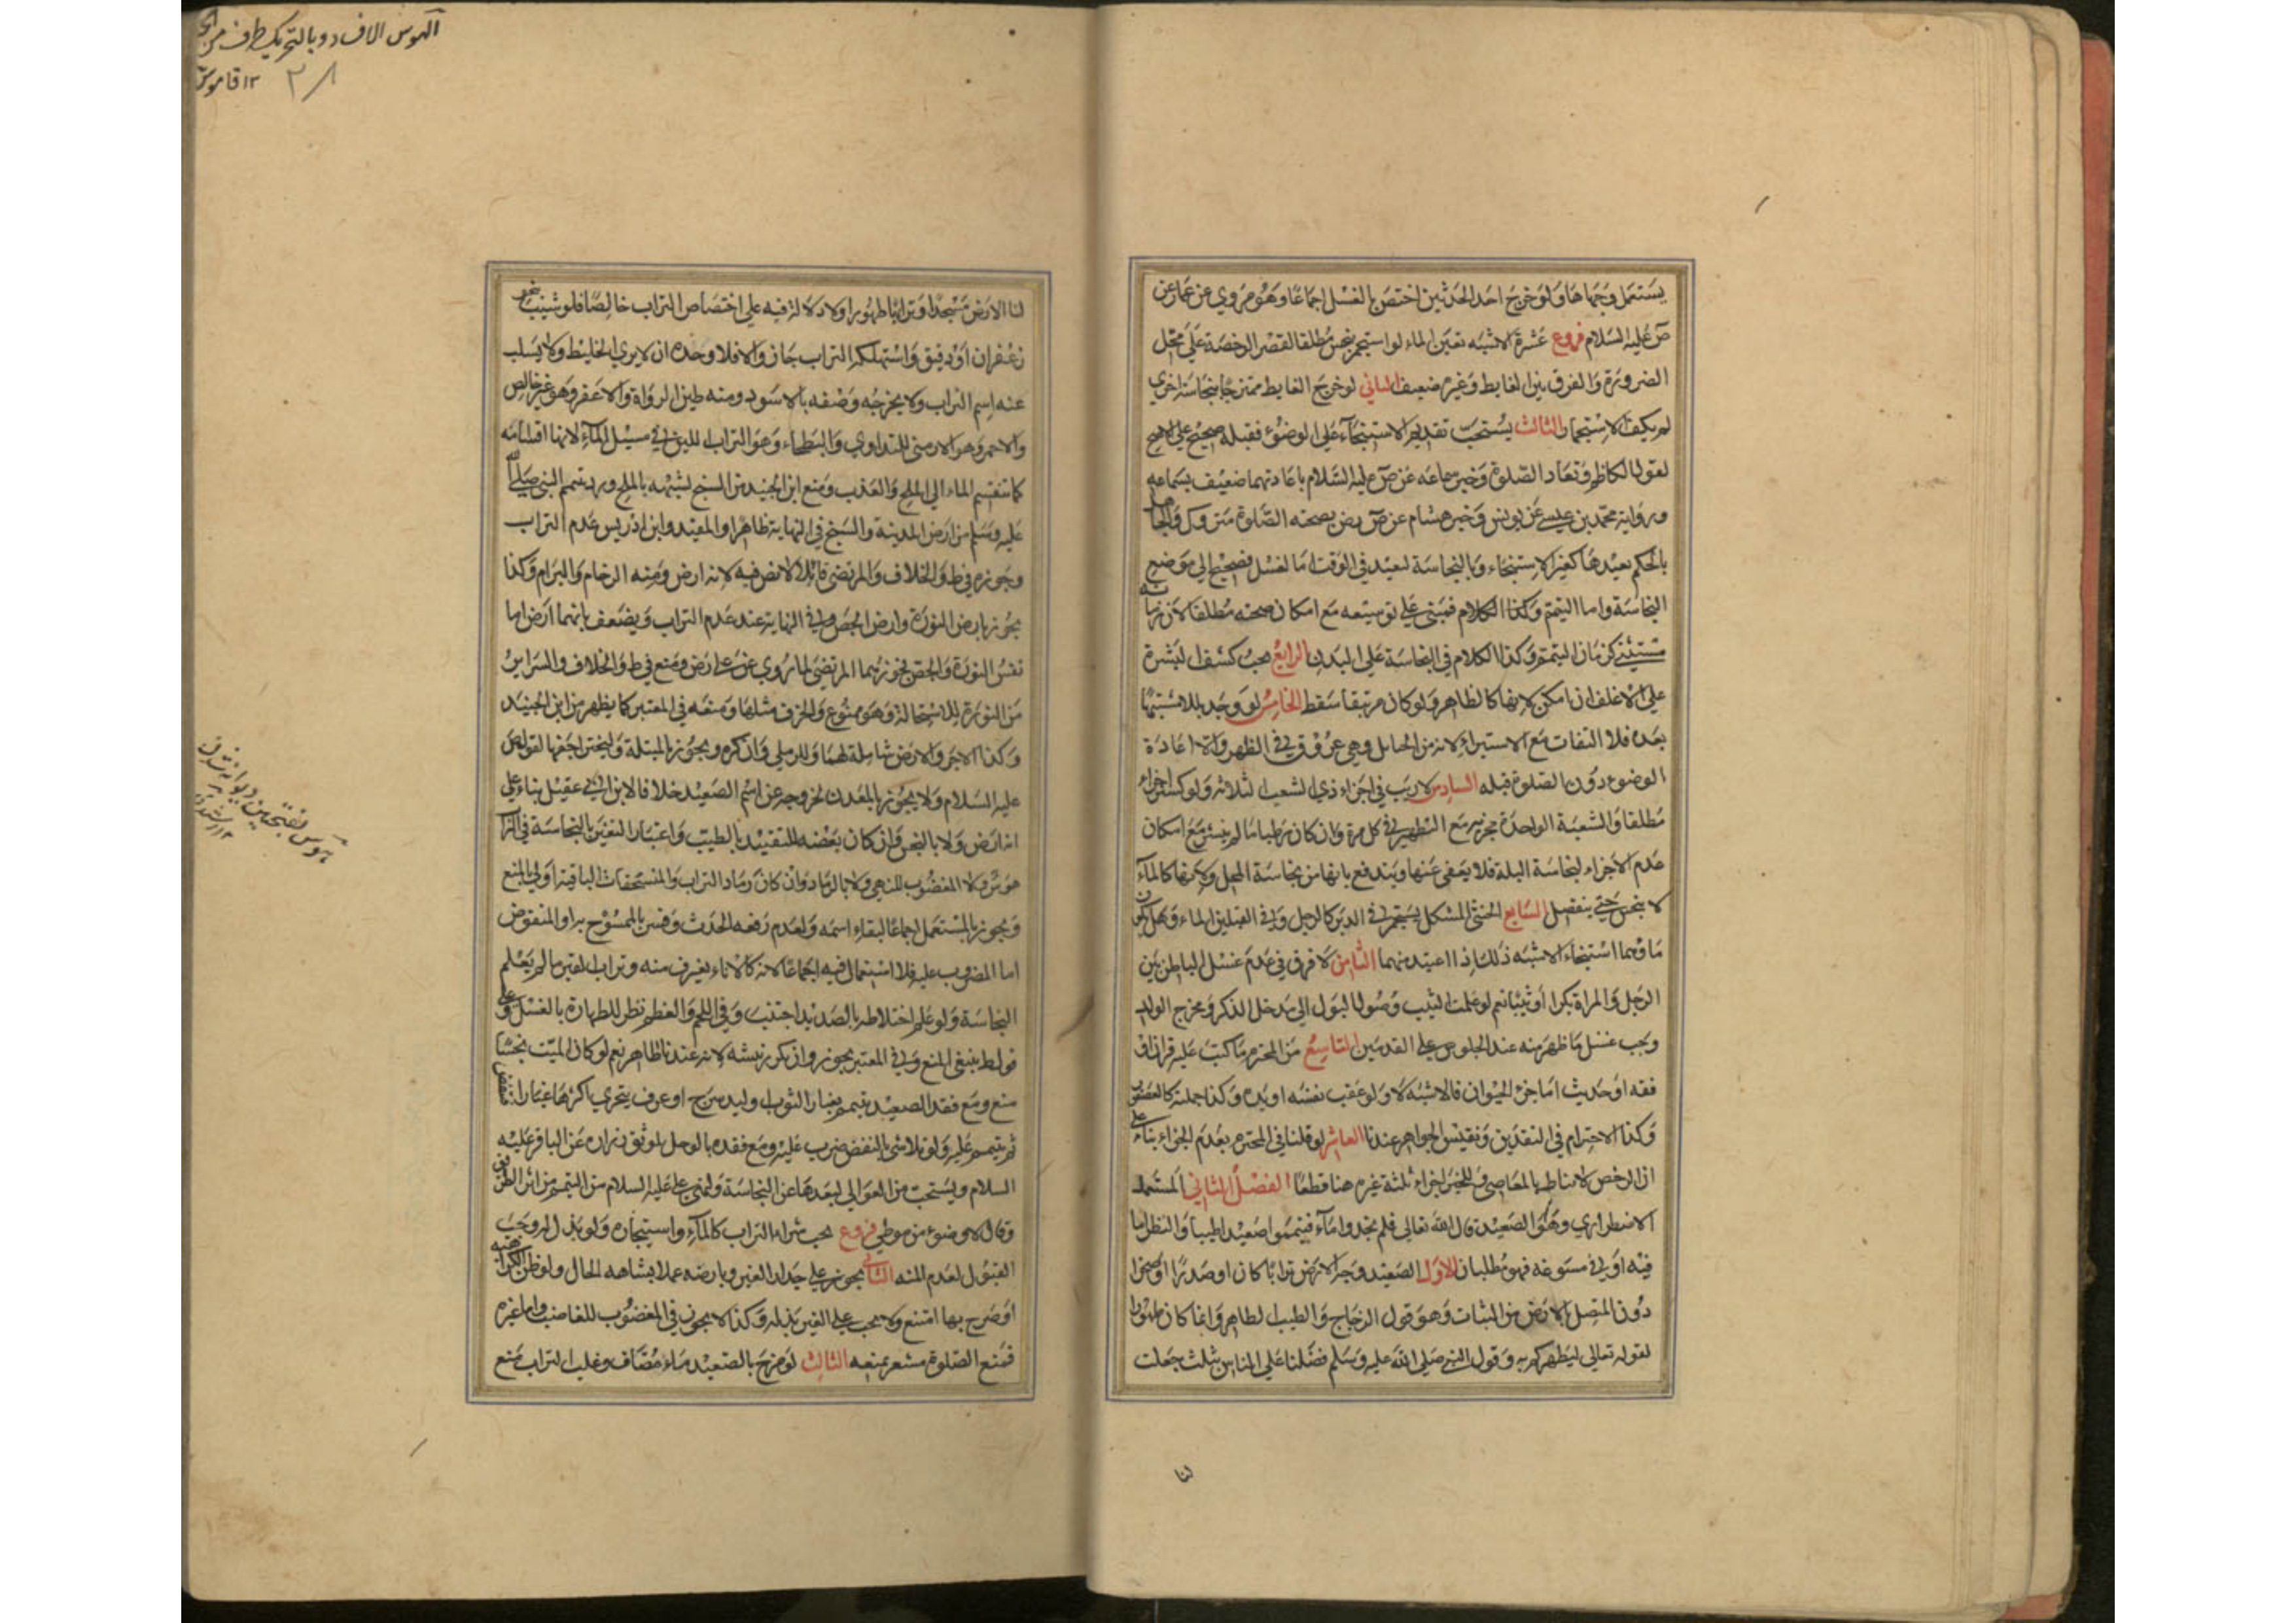 يستعمل وجهاها ولو خرج احد الحدثين اختص بالغسل اجماعا وهو مروي عن عمار عن
ص عليه السلام فروع عشرة الاشبه تعين الماء لو استجمر بنجس مطلقا لقصر الرخصة على محل
الضرورة والفرق بين الغايط وغيره ضعيف الثاني لو خرج الغايط ممتزجا بنجاسة اخري
لم يكف الاستجمار الثالث يستحب تقديم الاستنجاء علي الوضوء فقبله صحيح علي الاصح
لقول الكاظم وتعاد الصلوة وخبر سماعه عن ص عليه السلام باعادتهما ضعيف بسماعه
ورواية محمد بن عيسي عن يونس وخبر هشام عن ص بصحته الصلوة متروك والجاهل
بالحكم يعيدها كغير الاستنجاء وبالنجاسة لعيد في الوقت اما الغسل فصحيح الي موضع
النجاسة واما التيمم وكذا الكلام فمبني علي توسيعه مع امكان صحته مطلقا لان زمانه
مستثني كزمان التيمم وكذا الكلام في النجاسة علي البدن الرابع يجب كشف البشرة
علي الاغلف ان امكن لانها كالظاهر ولو كان مرتتقا سقط الخامس لو وجد بللا مشتبها
بعده فلا التفات مع الاستبراء لانه من الحبائل وهي عروق في الظهر والا اعادة
الوضوء دون الصلوة قبله السادس لا ريب في اجزاء ذي الشعب الثلاثة ولو كسر اجزاء
مطلقا والشعبة الواحدة مجزية مع التطهير في كل مرة وان كان رطبا ما لم ينشر مع امكان
عدم الاجزاء لنجاسة البلة فلا يعفي عنها ويندفع بانها من نجاسة المحل ولكونها كالماء
لا ينجس حتي ينفصل السابع الخنثي المشكل يستجمر في الدبر كالرجل وفي القبلين الماء وهل يكون
ماؤهما استنجاء الاشبه ذلك اذا اعتيد منهما الثامن لا فرق في عدم غسل الباطن بين
الرجل والمراة بكرا او ثيبا نعم لو علمت الثيب وصول البول الي مدخل الذكر ومخرج الولد
ويجب غسل ما ظهر منه عند الجلوس علي القدمين التاسع من المحترم ما كتب عليه قران او
فقه او حديث اما جزء الحيوان فالاشبه لا ولو عقب نفسه او يده وكذا جملته كالعصفور
وكذا الاحترام في النقدين ونفيس الجواهر عندنا العاشر لو قلنا في المحترم بعدم الجزاء بناء علي
ان الرخص لا يناط بالمعاصي ففي اجزاء ثلثة غيره هنا قطعا الفصل الثاني المستعمل
الاضطراري وهو الصعيد قال الله تعالي فلم تجدوا ماء فتيمموا صعيدا طيبا والنظر اما
فيه او في مسوغه فهو مطلبان الاول الصعيد وجه الارض ترابا كان او صدرا او صخرا
دون المتصل بالارض من النبات وهو قول الزجاج والطيب الطاهر وانما كان طهورا
لقوله تعالي ليطهركم به وقول النبي صلي الله عليه وسلم فضلنا علي الناس بثلث جعلت
لنا
الهوس الافساد وبالتحريك طرف من
١٢ قاموس
٢٨
لنا الارض مسجدا وترابها طهورا ولا دلالة فيه علي اختصاص التراب خالصا فلو شيب بنحو
زعفران او دقيق واستهلكه التراب جاز والا فلا وحده ان لا يري الخليط ولا يسلب
عنه اسم التراب ولا يخرجه وصفه بالاسود ومنه طين الدواة والاعفر وهو غير خالص
والاحمر وهو الارمني للتداوي والبطحاء وهو التراب اللين في مسيل الماء لانها اقسامه
كما تنقسم الماء الي الملح والعذب ومنع ابن الجنيد من السبخ لشبهه بالملح ورد بتيمم النبي صلي الله
عليه وسلم من ارض المدينة والشيخ في النهاية ظاهرا والمفيد وابن ادريس عدم التراب
وجوزه في ط والخلاف والمرتضي لانه ارض ومنه الرخام والبرام وكذا
يجوز بارض النورة وارض الجص وفي النهاية عند عدم التراب ويضعف بانهما ارض اما
نفس النورة والجص فجوزهما المرتضي لما روي عن علي ومنع في ط والخلاف والسراير
من النورة للاستحالة وهو ممنوع والخزف مثلها ومنعه في المعتبر كما يظهر من ابن الجنيد
وكذا الاجر والارض شاملة لهما وللرملي وان كره ويجوز بالمبتلة وليتحر اجفها لقول ص
عليه السلام ولا يجوز بالمعدن لخروجه عن اسم الصعيد خلافا لابن ابي عقيل بناء علي
انه ارض ولا بالنجس وان كان بعضه للتقييد بالطيب واعتبار التغير بالنجاسة في التراب
هوس ولا المغصوب للنهي ولا بالرماد وان كان رماد التراب والمنسحقات الباقية اولي بالمنع
ويجوز بالمستعمل اجماعا لبقاء اسمه ولعدم رفعه الحدث وفسر بالممسوح به او المنفوض
اما المضروب عليه فلا استعمال فيه اجماعا لانه كالاناء يغترف منه وتراب القبر ما لم يعلم
النجاسة ولو علم اختلاطه بالصديد اجتنب وفي اللحم والعظم نظر للطهارة بالغسل وعلي
قول ط ينبغي المنع وفي المعتبر يجوز وان تكرر نبشه لانه عندنا طاهر نعم لو كان الميت نجسا
منع ومع فقد الصعيد يتيمم بغبار الثوب ولبد سرج او عرف يتحري اكثرها غبارا ينفض
ثم يتيمم عليه ولو تلاشي بالنفض ضرب عليه ومع فقده بالوحل لموثق زرارة عن الباقر عليه
السلام ويستحب من العوالي لبعدها عن النجاسة ولنهي علي عليه السلام من التيمم من اثر الطريق
وقال لا وضوء من موطي فروع يجب شراء التراب كالماء واستيجاره ولو بذل له وجب
القبول لعدم المنه الثاني يجوز علي جدار الغير وبارضه عملا بشاهد الحال ولو ظن الكراهة
او صرح بها امتنع ولا يجب علي الغير بذله وكذا لا يجوز في المغصوب للغاصب واما غيره
فمنع الصلوة مشعر بمنعه الثالث لو مزج بالصعيد ماء مضاف وغلب التراب منع
هوس بفتحتين